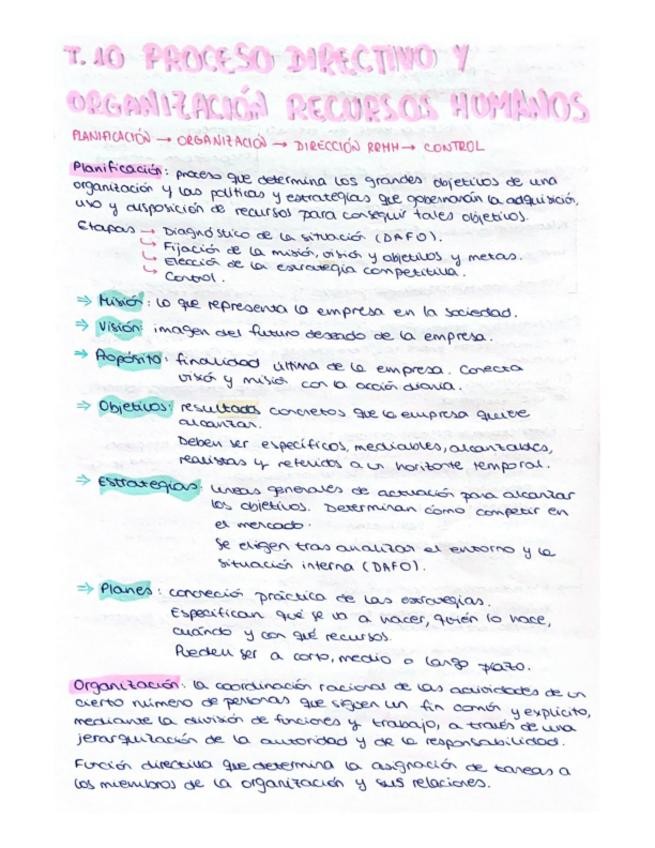 T.10 PROCESO DIRECTIVO Y
ORGANIZACIÓN RECURSOS HUMANOS
PLANIFICACIÓN → ORGANIZACIÓN → DIRECCIÓN RRHH → CONTROL
Planificación: proceso que determina los grandes objetivos de una
organización y las políticas y estrategias que gobernarán la adquisición,
uso y disposición de recursos para conseguir tales objetivos.
Etapas → Diagnóstico de la situación (DAFO).
↳ Fijación de la misión, visión y objetivos y metas.
↳ Elección de la estrategia competitiva.
↳ Control.
⇒ Misión: lo que representa la empresa en la sociedad.
⇒ Visión: imagen del futuro deseado de la empresa.
⇒ Propósito: finalidad última de la empresa. Conecta
visión y misión con la acción diaria.
⇒ Objetivos: resultados concretos que la empresa quiere
alcanzar.
Deben ser específicos, medibles, alcanzables,
realistas y referidos a un horizonte temporal.
⇒ Estrategias: líneas generales de actuación para alcanzar
los objetivos. Determinan cómo competir en
el mercado.
Se eligen tras analizar el entorno y la
situación interna (DAFO).
⇒ Planes: concreción práctica de las estrategias.
Especifican qué se va a hacer, quién lo hace,
cuándo y con qué recursos.
Pueden ser a corto, medio o largo plazo.
Organización: la coordinación racional de las actividades de un
cierto número de personas que siguen un fin común y explícito,
mediante la división de funciones y trabajo, a través de una
jerarquización de la autoridad y de la responsabilidad.
Función directiva que determina la asignación de tareas a
los miembros de la organización y sus relaciones.